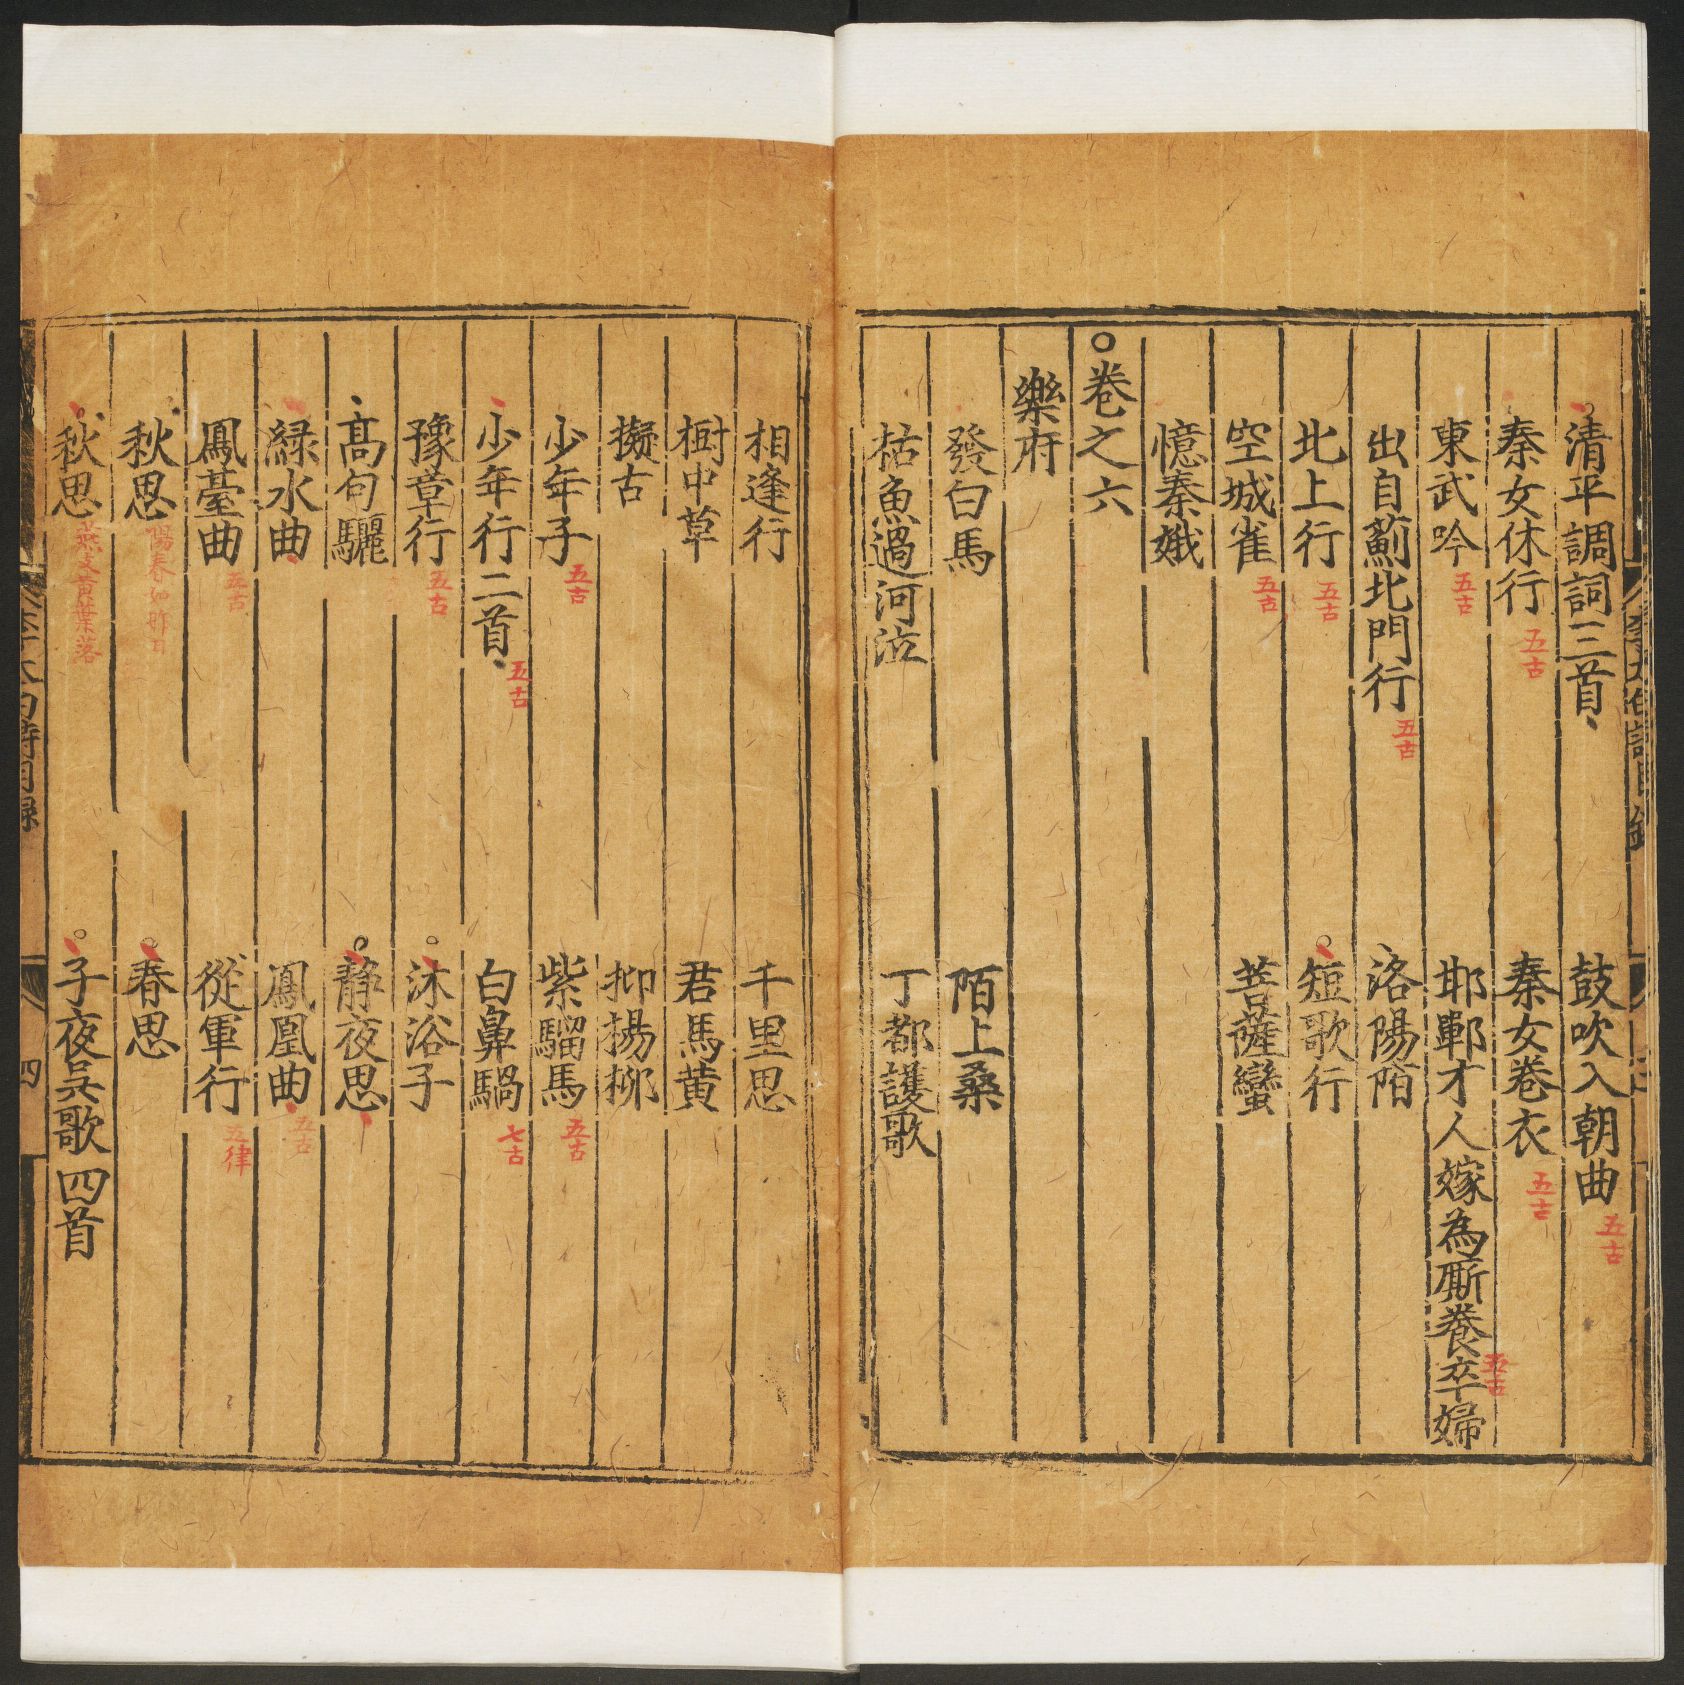 清平調詞三首　鼓吹入朝曲五古
秦女休行五古　秦女卷衣五古
東武吟五古　邯鄲才人嫁為厮養卒婦五古
出自薊北門行五古　洛陽陌
北上行五古　短歌行
空城雀五古　菩薩蠻
憶秦娥
卷之六
樂府
發白馬　陌上桑
枯魚過河泣　丁都護歌
相逢行　千里思
樹中草　君馬黃
擬古　折楊栁
少年子五古　紫騮馬五古
少年行二首五古　白鼻騧七古
豫章行五古　沐浴子
髙句驪　靜夜思
緑水曲　鳳凰曲五古
鳳臺曲五古　從軍行五律
秋思陽春如昨日　春思
秋思燕支黃葉落　子夜吳歌四首
李太白詩目録　四